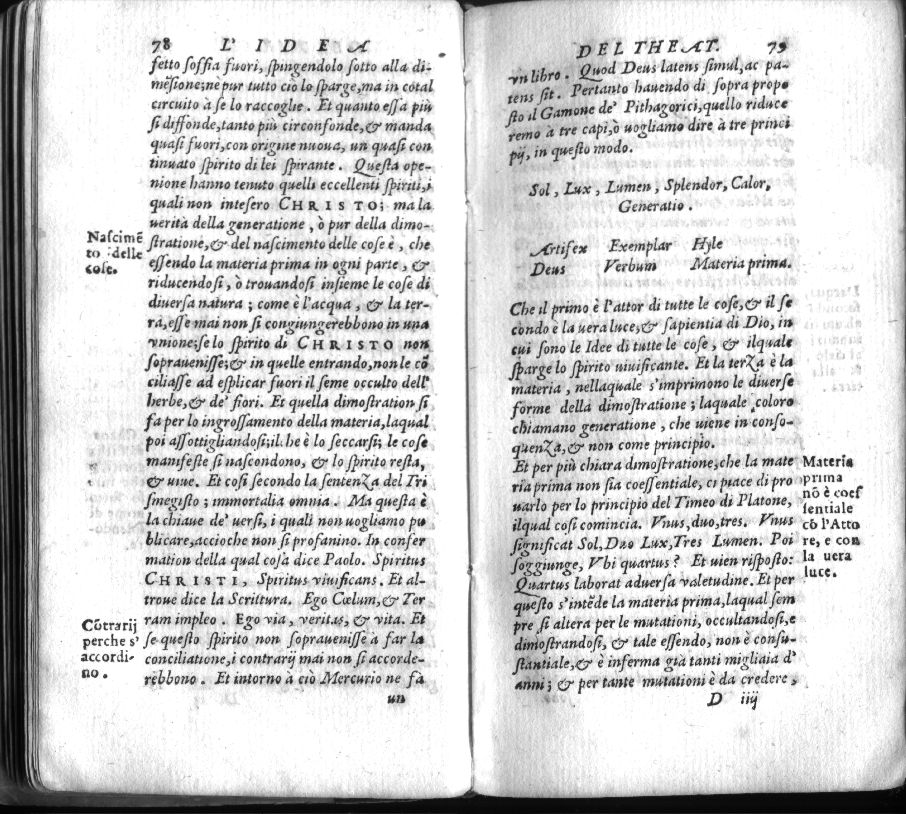 78 L'IDEA
fetto soffia fuori, spingendolo sotto alla di-
mẽsione; nè pur tutto ciò lo sparge, ma in cotal
circuito à se lo raccoglie. Et quanto essa più
si diffonde, tanto più circonfonde, & manda
quasi fuori, con origine nuoua, un quasi con
tinuato spirito di lei spirante. Questa ope-
nione hanno tenuto quelli eccellenti spiriti, i
quali non intesero CHRISTO; ma la
uerità della generatione, ò pur della dimo-
stratione, & del nascimento delle cose è, che
essendo la materia prima in ogni parte, &
riducendosi, ò trouandosi insieme le cose di
diuersa natura; come è l'acqua, & la ter-
ra, esse mai non si congiungerebbono in una
vnione; se lo spirito di CHRISTO non
soprauenisse; & in quelle entrando, non le cõ
ciliasse ad esplicar fuori il seme occulto dell'
herbe, & de' fiori. Et quella dimostration si
fa per lo ingrossamento della materia, laqual
poi assottigliandosi; il. he è lo seccarsi; le cose
manifeste si nascondono, & lo spirito resta,
& uiue. Et cosi secondo la sentenza del Tri
smegisto; immortalia omnia. Ma questa è
la chiaue de' uersi, i quali non uogliamo pu
blicare, accioche non si profanino. In confer
mation della qual cosa dice Paolo. Spiritus
CHRISTI, Spiritus viuificans. Et al-
troue dice la Scrittura. Ego Cœlum, & Ter
ram impleo. Ego via, veritas, & vita. Et
se questo spirito non soprauenisse à far la
conciliatione, i contrarij mai non si accorde-
rebbono. Et intorno à ciò Mercurio ne fà
un
Nascimẽ
to delle
cose.
Cõtrarij
perche s'
accordi-
no.
DEL THEAT. 79
vn libro. Quod Deus latens simul, ac pa-
tens sit. Pertanto hauendo di sopra propo
sto il Gamone de' Pithagorici, quello riduce
remo à tre capi, ò uogliamo dire à tre princi
pij, in questo modo.
Sol, Lux, Lumen, Splendor, Calor,
Generatio.
Artifex Exemplar Hyle
Deus Verbum Materia prima.
Che il primo è l'attor di tutte le cose, & il se
condo è la uera luce, & sapientia di Dio, in
cui sono le Idee di tutte le cose, & ilquale
sparge lo spirito uiuificante. Et la terza è la
materia, nellaquale s'imprimono le diuerse
forme della dimostratione; laquale coloro
chiamano generatione, che uiene in conso-
quenza, & non come principio.
Et per più chiara dimostratione, che la mate
ria prima non sia coessentiale, ci piace di pro
uarlo per lo principio del Timeo di Platone,
ilqual cosi comincia. Vnus, duo, tres. Vnus
significat Sol, Duo Lux, Tres Lumen. Poi
soggiunge, Vbi quartus? Et uien risposto:
Quartus laborat aduersa valetudine. Et per
questo s'intẽde la materia prima, laqual sem
pre si altera per le mutationi, occultandosi, e
dimostrandosi, & tale essendo, non è consu-
stantiale, & è inferma già tanti migliaia d'
anni; & per tante mutationi è da credere,
D iiij
Materia
prima
nõ è coes
sentiale
cõ l'Atto
re, e con
la uera
luce.